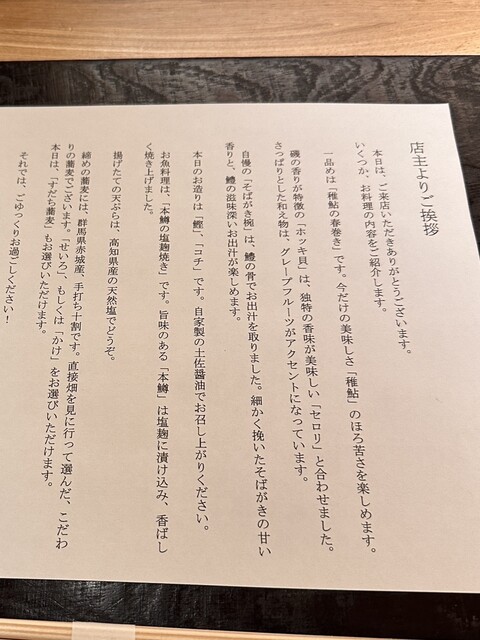 店主よりご挨拶
本日は、ご来店いただきありがとうございます。
いくつか、お料理の内容をご紹介します。
一品めは「稚鮎の春巻き」です。今だけの美味しさ「稚鮎」のほろ苦さを楽しめます。
磯の香りが特徴の「ホッキ貝」は、独特の香味が美味しい「セロリ」と合わせました。
さっぱりとした和え物は、グレープフルーツがアクセントになっています。
自慢の「そばがき椀」は、鱧の骨でお出汁を取りました。細かく挽いたそばがきの甘い
香りと、鱧の滋味深いお出汁が楽しめます。
本日のお造りは「鰹」、「コチ」です。自家製の土佐醤油でお召し上がりください。
お魚料理は、「本鱒の塩麹焼き」です。旨味のある「本鱒」は塩麹に漬け込み、香ばし
く焼き上げました。
揚げたての天ぷらは、高知県産の天然塩でどうぞ。
締めの蕎麦には、群馬県赤城産、手打ち十割です。直接畑を見に行って選んだ、こだわ
りの蕎麦でございます。「せいろ」、もしくは「かけ」をお選びいただけます。
本日は、「すだち蕎麦」もお選びいただけます。
それでは、ごゆっくりお過ごしください!